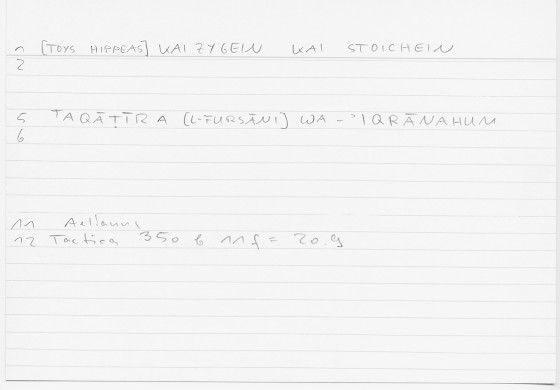 1 [TOYS HIPPEAS] KAI ZYGEIN KAI STOICHEIN
2
5 TAQĀṬĪRA (L-FURSĀNI] WA-ʾIQRĀNAHUM
6
11 Aelianus
12 Tactica 350 b 11 f = 20.9